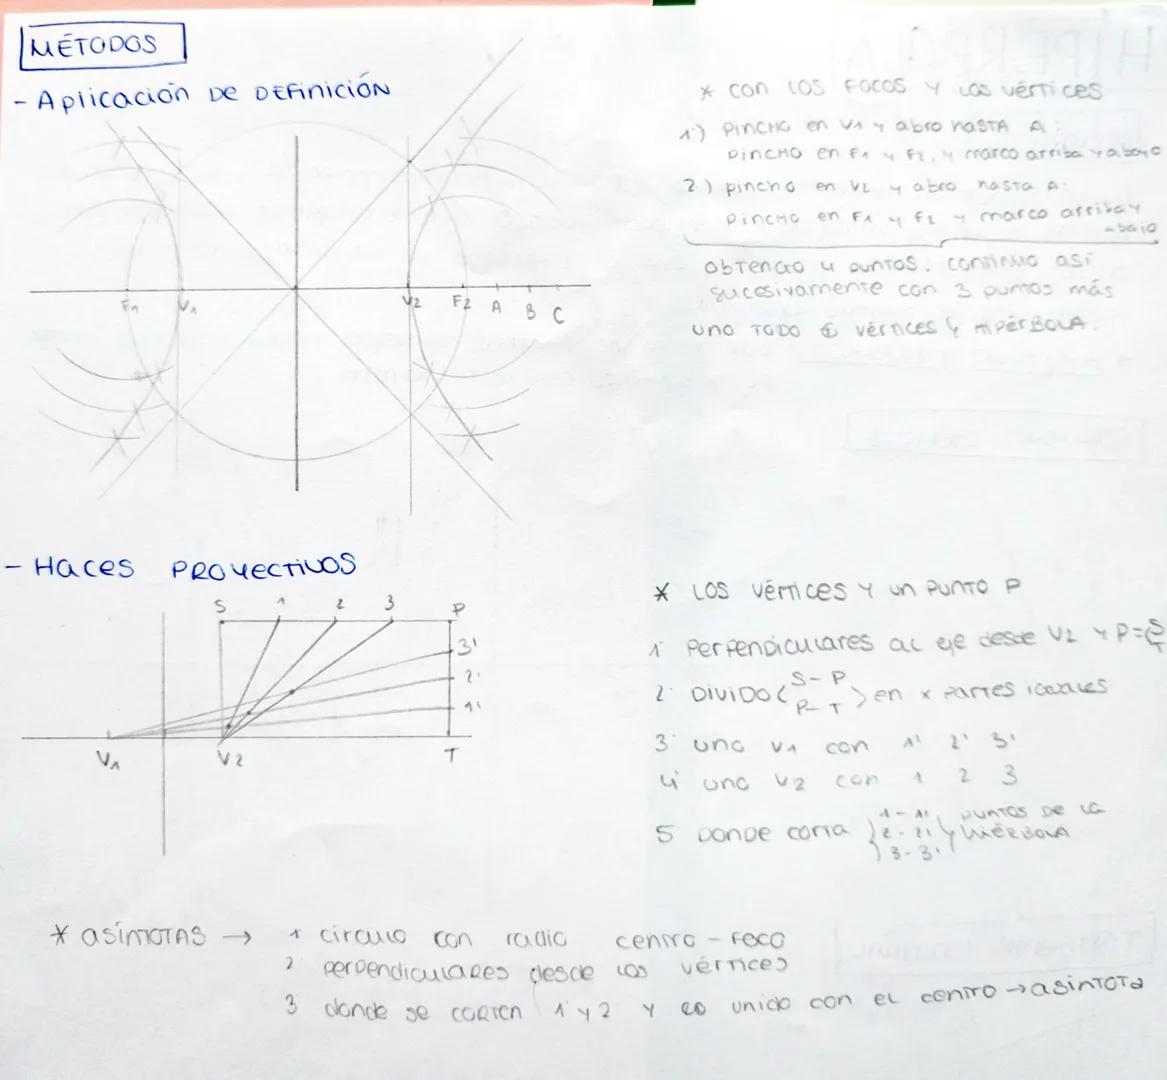 MÉTODOS
- Aplicación DE DEFINICIÓN
* CON LOS FOCOS Y LOS VÉRTICES
1') PINCHO en V1 y abro HASTA A:
PINCHO en F1 y F2, y marco arriba y abajo
2') pincho en V2 y abro hasta A:
PINCHO en F1 y F2 y marco arriba y
abajo
OBTENGO 4 PUNTOS. CONTINUO ASÍ
sucesivamente con 3 puntos más
UNO TODO vértices HIPÉRBOLA.
F1 V1 V2 F2 A B C
- Haces PROYECTIVOS
S 1 2 3 P
3'
2'
1'
V1 V2 T
* LOS VÉRTICES Y un PUNTO P
1' PERPENDICULARES AL eje desde V2 y P=
S
T
2' DIVIDO (S-P
P-T) en x PARTES iguales
3' uno V1 con 1' 2' 3'
4' uno V2 con 1 2 3
5 DONDE corta {1-1'
2-2'
3-3'} PUNTOS DE LA
HIÉRBOLA
* asíntotas → 1 círculo con radio centro - Foco
2 perpendiculares desde los vértices
3 donde se corten 1 y 2 y lo unido con el centro → asíntota